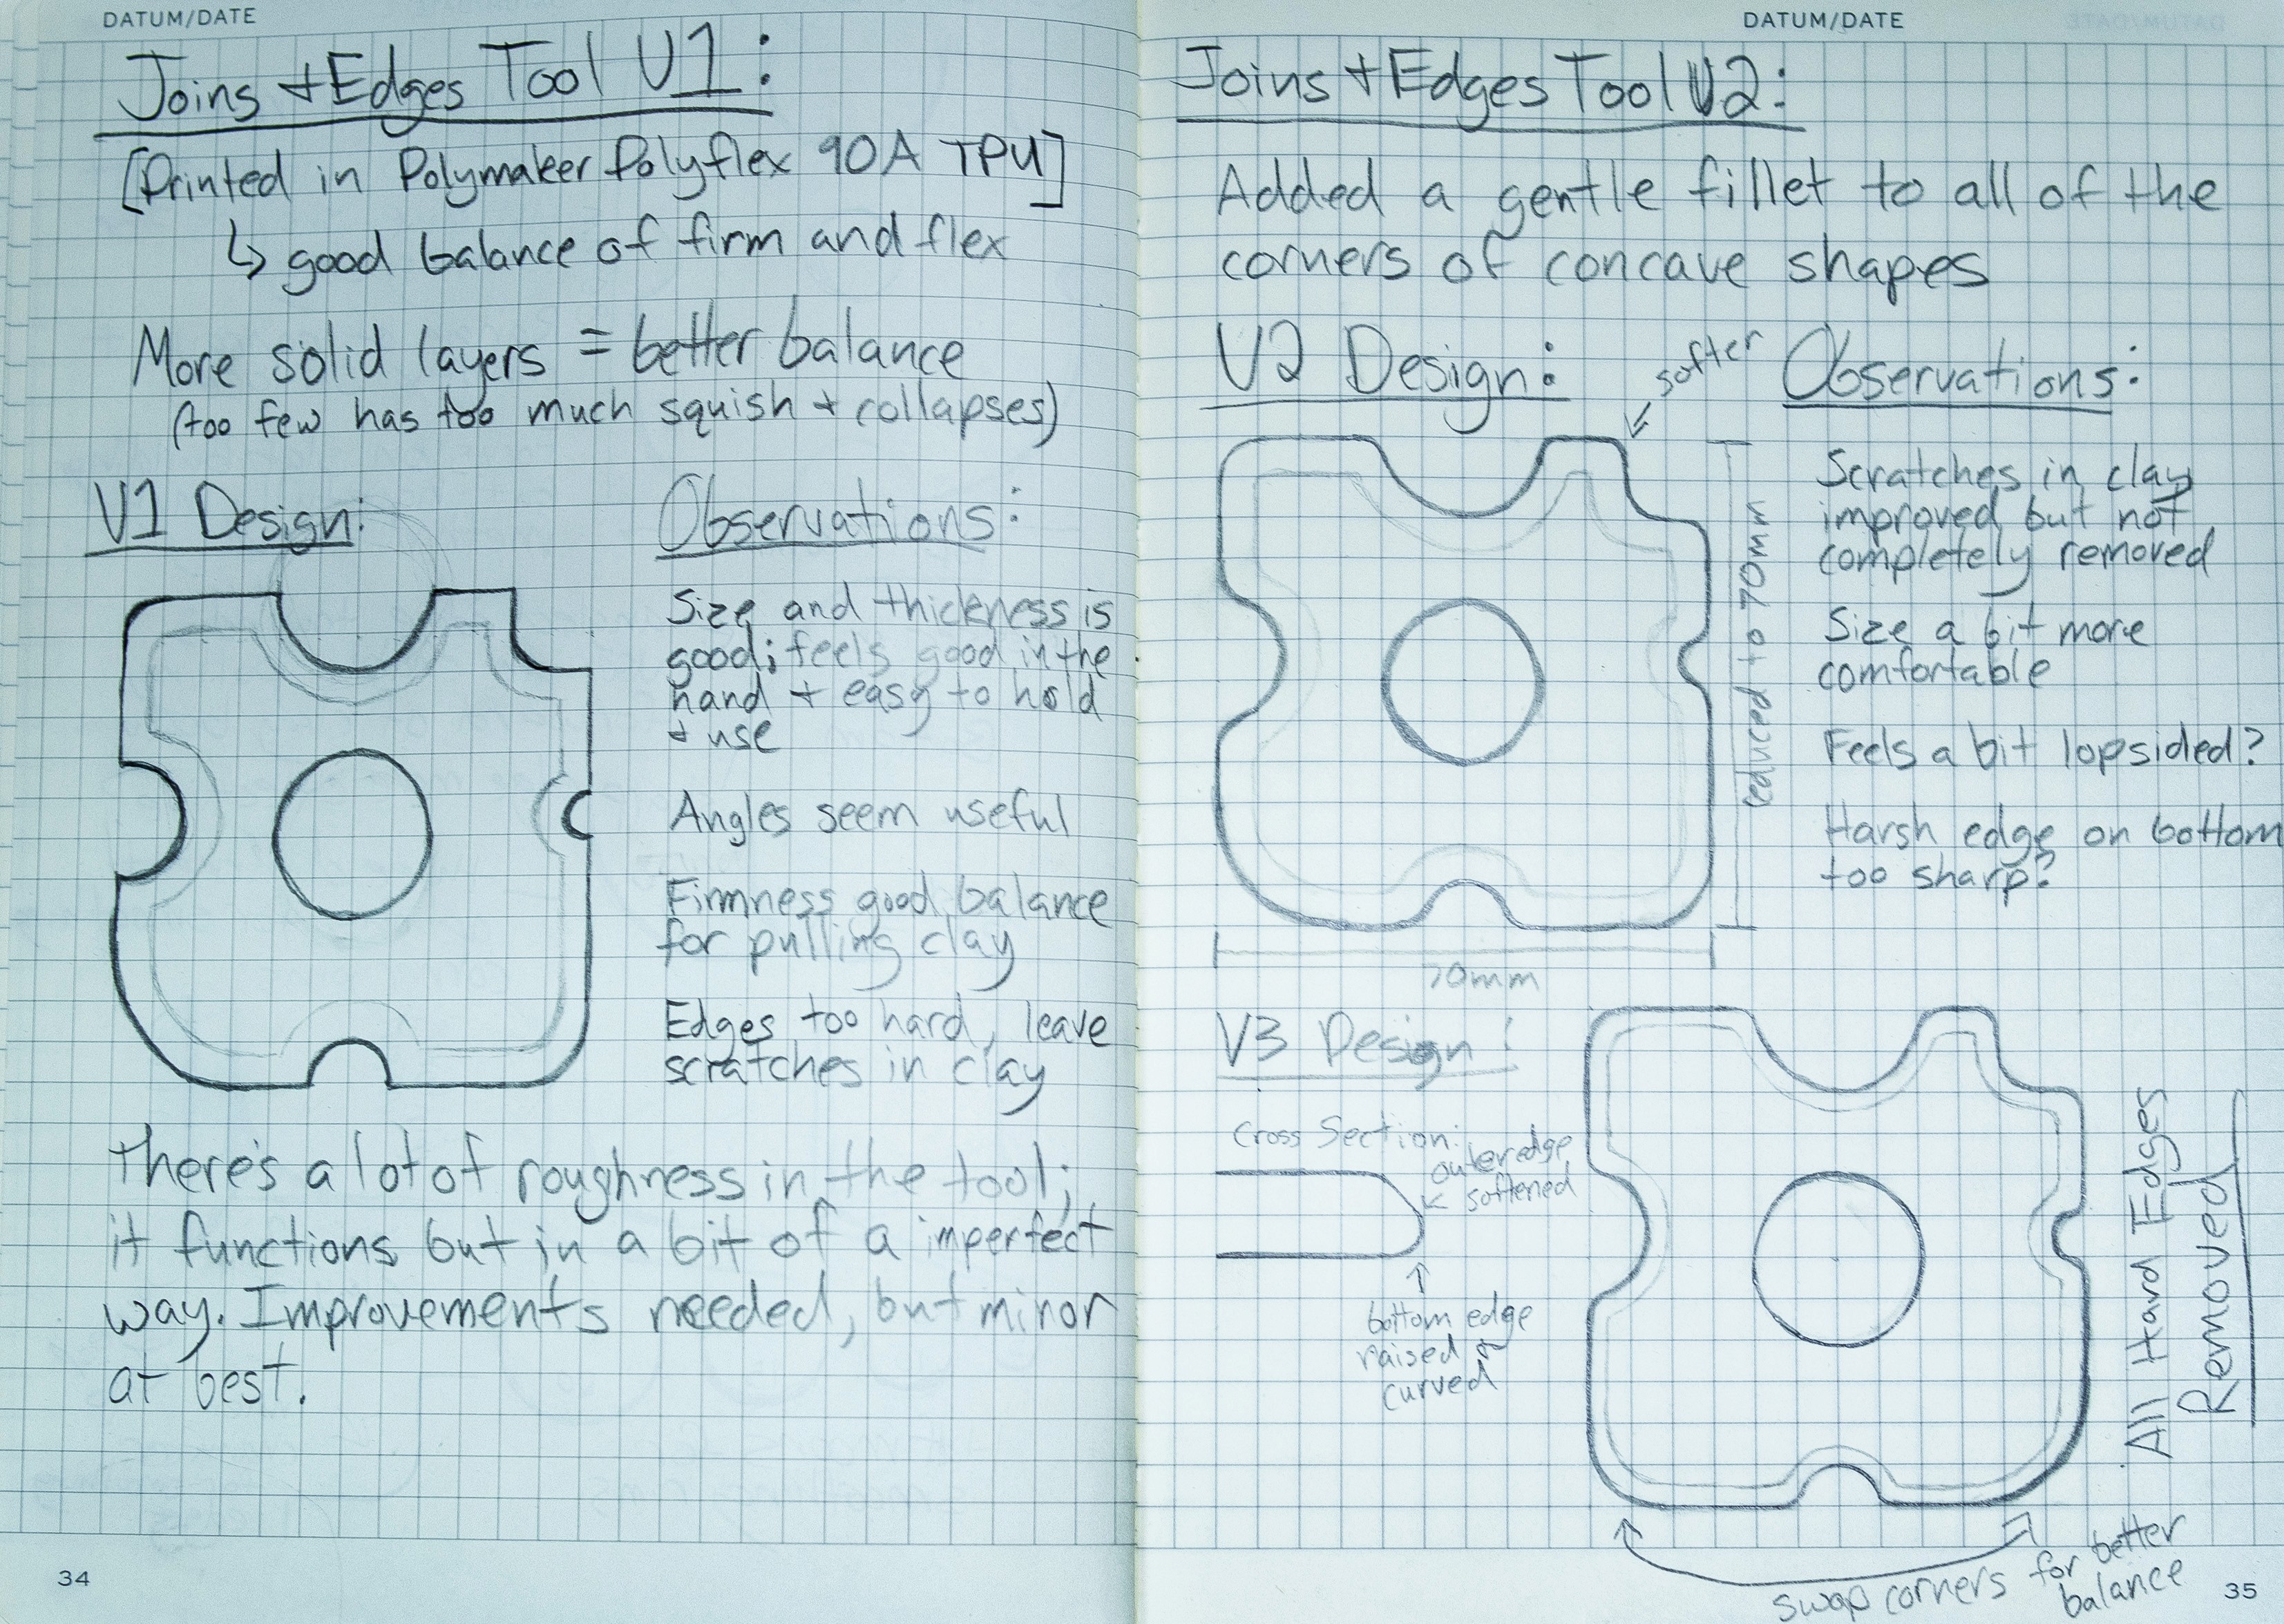 DATUM/DATE
Joins + Edges Tool V1:
[Printed in Polymaker Polyflex 90A TPU]
↳ good balance of firm and flex
More solid layers = better balance
(too few has too much squish + collapses)
V1 Design:
Observations:
Size and thickness is
good; feels good in the
hand + easy to hold
+ use
Angles seem useful
Firmness good balance
for pulling clay
Edges too hard, leave
scratches in clay
There's a lot of roughness in the tool;
it functions but in a bit of a imperfect
way. Improvements needed, but minor
at best.
34
DATUM/DATE
Joins + Edges Tool V2:
Added a gentle fillet to all of the
corners of concave shapes
V2 Design:
softer
Observations:
Scratches in clay
improved but not
completely removed
Size a bit more
comfortable
Feels a bit lopsided?
Harsh edge on bottom
too sharp?
reduced to 70mm
70mm
V3 Design:
Cross Section:
outer edge
softened
bottom edge
raised +
curved
All Hard Edges
Removed
swap corners for better
balance
35